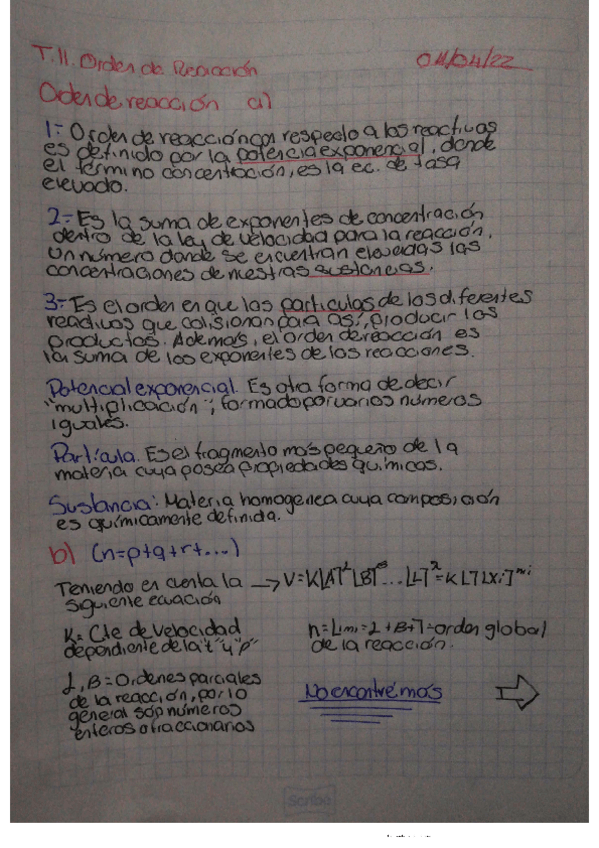 T.11. Orden de Reacción 04/04/22
Orden de reacción a)
1:- Orden de reacción con respecto a los reactivos
es definido por la potencia exponencial, donde
el término concentración, es la ec. de tasa
elevado.
2:- Es la suma de exponentes de concentración
dentro de la ley de velocidad para la reacción.
Un número donde se encuentran elevadas las
concentraciones de nuestras sustancias.
3:- Es el orden en que las partículas de los diferentes
reactivos que colisionan para así, producir los
productos. Además, el orden de reacción es
la suma de los exponentes de las reacciones.
Potencial exponencial. Es otra forma de decir
"multiplicación", formado por varios números
iguales.
Partícula. Es el fragmento más pequeño de la
materia cuya posea propiedades químicas.
Sustancia: Materia homogenea cuya composición
es químicamente definida.
b) (n=p+q+r+...)
Teniendo en cuenta la
siguiente ecuación
K= Cte de velocidad
dependiente de la "t" y "p"
n= =orden global
de la reacción.
,B=Ordenes parciales
de la reacción, por lo
general son números
enteros o fraccionarios
No encontré más
Scribe